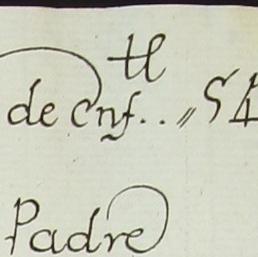 de cnf..〃 54
Padre